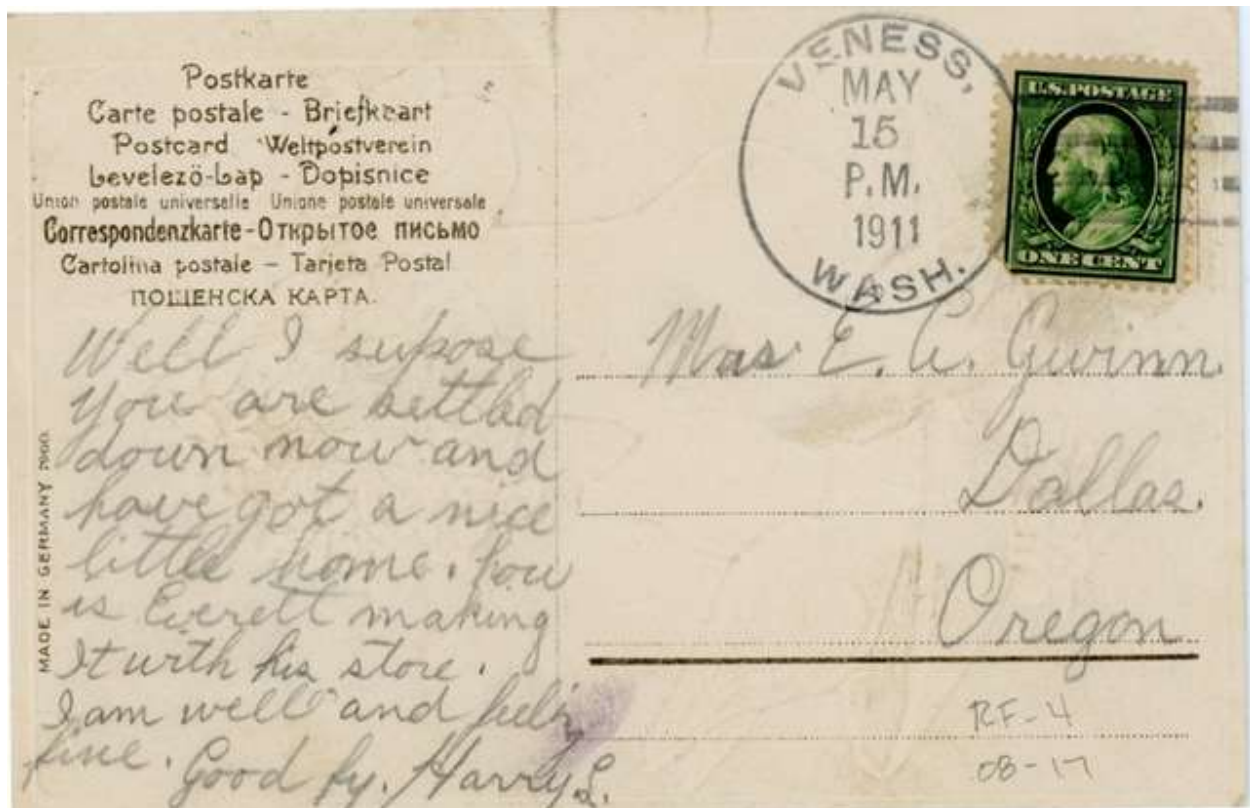 Postkarte
Carte postale - Briefkaart
Postcard Weltpostverein
Levelező-Lap - Dopisnice
Union postale universelle Unione postale universale
Correspondenzkarte - Открытое письмо
Cartolina postale – Tarjeta Postal
ПОЩЕНСКА КАРТА.
VENESS,
MAY
15
P.M.
1911
WASH.
U.S. POSTAGE
ONE CENT
Well I supose
you are settled
down now and
have got a nice
little home. how
is Everett making
It with his store.
I am well and feeling
fine. Good by. Harry L.
MADE IN GERMANY
Mrs E. A. Gwinn.
Dallas.
Oregon
RF-4
08-17